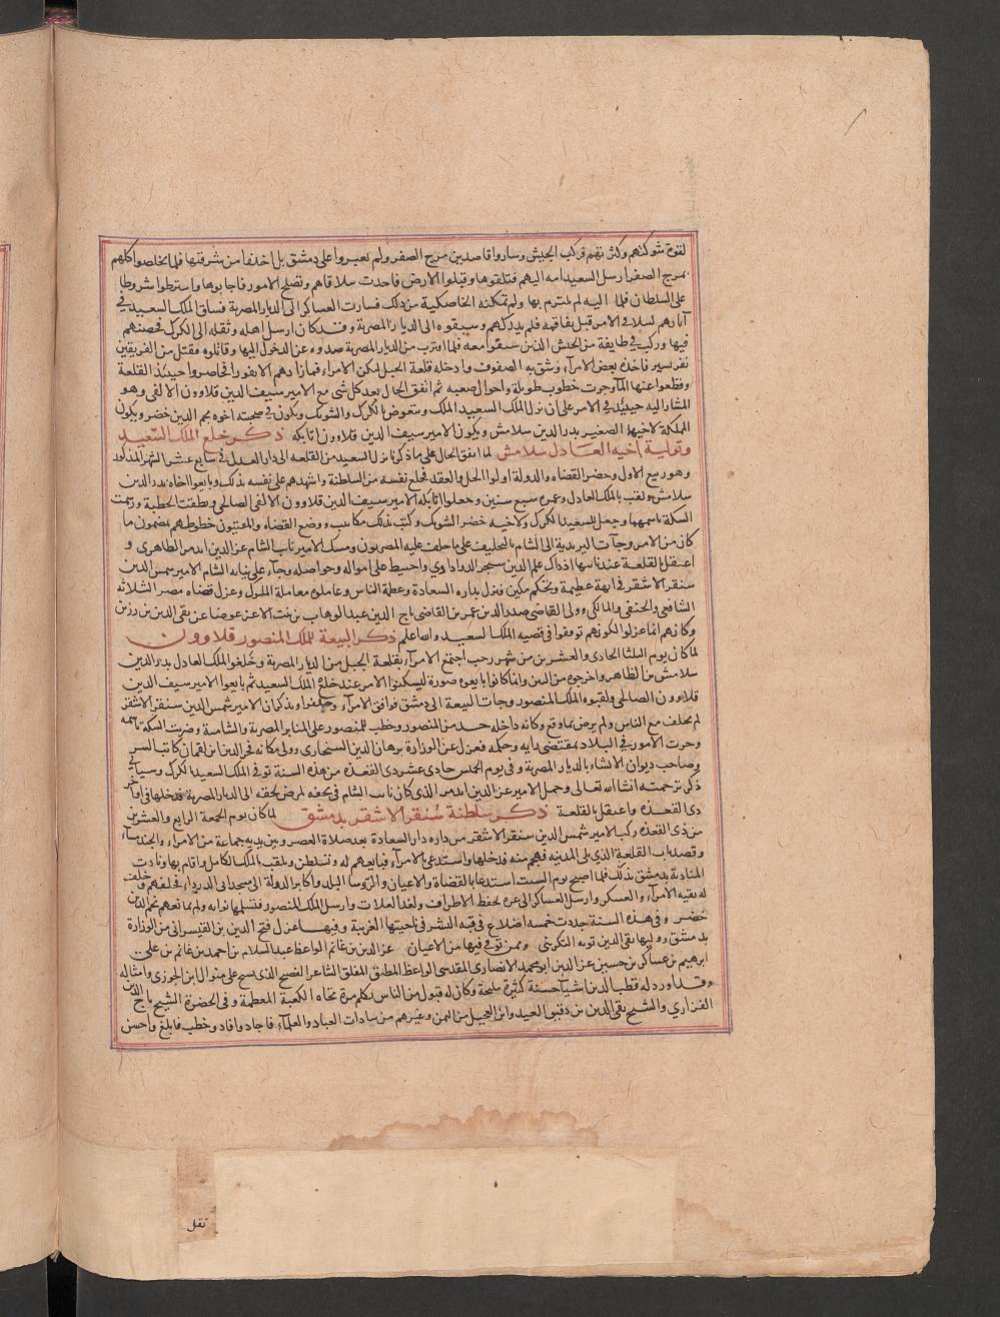 لقوة شوكتهم وكثرتهم فركب الجيش وساروا قاصدين مرج الصفر ولم يعبروا على دمشق بل اخذوا من شرقيها فلما تخلصوا كلهم
بمرج الصفر ارسل السعيد امه اليهم فتلقوها وقبلوا الارض فاخذت تتلافاهم وتصلح الامور فاجابوها واشترطوا شروطا
على السلطان فلما اليه لم يلتزم بها ولم تمكنه الخاصكية من ذلك فسارت العساكر الى الديار المصرية فساق الملك السعيد في
آثارهم ليتلافى الامر قبل تفاقمه فلم يدركهم وسبقوه الى الديار المصرية وقد كان ارسل اهله وثقله الى الكرك فحصنهم
فيها وركب في طايفة من الجيش الذين بقوا معه فلما اقترب من الديار المصرية صدوه عن الدخول اليها وقاتلوه فقتل من الفريقين
نفر يسير فاخذه بعض الامرآء وشق به الصفوف وادخله قلعة الجبل ليسكن الامر فما زادهم الا نفورا فحاصروا حينئذ القلعة
وقطعوا عنها المآ وجرت خطوب طويلة واحوال صعبه ثم اتفق الحال بعد كل شى مع الامير سيف الدين قلاوون الالفى وهو
المشار اليه حينئذ في الامر على ان نزل الملك السعيد الملك ويتعوض بالكرك والشوبك ويكون في صحبته اخوه نجم الدين خضر ويكون
المملكة لاخيه الصغير بدر الدين سلامش ويكون الامير سيف الدين قلاوون اتابكه ذكر خلع الملك السعيد
وتولية اخيه العادل سلامش لما اتفق الحال على ما ذكرنا نزل السعيد من القلعه الى دار العدل في سابع عشر الشهر المذكور
وهو ربيع الاول وحضر القضاه والدولة اولوا الحل والعقد فخلع نفسه من السلطنة واشهدهم على نفسه بذلك وبايعوا اخاه بدر الدين
سلامش ولقب بالملك العادل وعمره سبع سنين وجعلوا اتابكه الامير سيف الدين قلاوون الالفى الصالحى وخطبت الخطبة ورسمت
السكة باسمهما وجعل للسعيد الكرك ولاخيه خضر الشوبك وكتب بذلك مكاتيب ووضع القضاه والمفتيون خطوطهم بمضمون ما
كان من الامر وجآت البريدية الى الشام بالتحليف على ما حلف عليه المصريون ومسك الامير نائب الشام عز الدين ايدمر الظاهرى و
اعتقل بالقلعة عند نائبها اذذاك علم الدين سنجر الدواداوي واحيط على امواله وحواصله وجآء على نيابة الشام الامير شمس الدين
سنقر الاشقر في ابهة عظيمة وتحكم مكين فنزل بداره السعادة وعظمه الناس وعاملوه معاملة الملوك وعزل قضاه مصر الثلاثه
الشافعى والحنفى والمالكى وولى القاضى صدر الدين عمر بن القاضى تاج الدين عبد الوهاب بن بنت الاعز عوضا عن تقى الدين بن رزين
وكانهم انما عزلوا لكونهم توقفوا في قضيه الملك السعيد واصاعلم ذكر البيعة للملك المنصور قلاوون
لما كان يوم الثلثا الحادى والعشرين من شهر رجب اجتمع الامرآء بقلعة الجبل من الديار المصرية وخلعوا الملك العادل بدر الدين
سلامش بن الظاهر واخرجوه من البين وانما كانوا بايعوه صورة ليسكنوا الامر عند خلع الملك السعيد ثم بايعوا الامير سيف الدين
قلاوون الصالحى ولقبوه الملك المنصور وجآت البيعة الى دمشق فوافق الامرآء وحلفوا ويذكر ان الامير شمس الدين سنقر الاشقر
لم يحلف مع الناس ولم يرض بما وقع وكانه داخله حسد من المنصور وخطب للمنصور على المنابر المصرية والشامية وضربت السكة باسمه
وجرت الامور في البلاد بمقتضى رايه وحكمه فعزل عن الوزارة برهان الدين السنجارى وولى مكانه فخر الدين بن لقمان كاتب السر
وصاحب ديوان الانشاء بالديار المصرية وفي يوم الخميس حادى عشر ذى القعده من هذه السنة توفى الملك السعيد بالكرك وسيأتي
ذكر ترجمته انشاالله تعالى وحمل الامير عز الدين ايدمر الذى كان نائب الشام في محفه لمرض لحقه الى الديار المصرية فدخلها في اواخر
ذى القعده واعتقل بالقلعة ذكر سلطنة سنقر الاشقر بدمشق لما كان يوم الجمعة الرابع والعشرين
من ذى القعده ركب الامير شمس الدين سنقر الاشقر من داره دار السعادة بعد صلاة العصر وبين يديه جماعة من الامراء والجند مشاه
وقصد باب القلعة الذى يلى المدينه فهجم منه فدخلها واستدعى الامرآء فبايعهم له وتسلطن وتلقب بالملك الكامل واقام بها ونادت
المنادية بدمشق بذلك فلما اصبح يوم السبت استدعا بالقضاة والاعيان والرؤسا البلد واكابر الدولة الى مسجد ابى الدرداء فحلفهم وحلف
له بقيه الامرآء والعسكر وارسل العساكر الى غزه لحفظ الاطراف واخذ الغلات وارسل الملك المنصور فتسلمها نوابه ولم يمانعهم نجم الدين
خضر وفي هذه السنة جددت خمسه اضلاع في قبه النسر في ناحيتها الغربية وفيها عزل فتح الدين بن القيسرانى من الوزارة
بدمشق ووليها تقى الدين توبه التكريتى وممن توفي فيها من الاعيان عز الدين بن غانم الواعظ عبد السلام بن احمد بن غانم بن على
ابرهيم بن عساكر بن حسين عز الدين ابو محمد الانصارى المقدسى الواعظ المطبق المفلق الشاعر الفصيح الذى نسج على منوال ابن الجوزى وامثاله
وقد اورد له قطب الدين اشيآء حسنة كثيرة مليحة وكان له قبول من الناس تكلم مرة تجاه الكعبة المعظمة وفي الحضرة الشيخ تاج الدين
الفزاري والشيخ تقى الدين بن دقيق العيد وابن العجيل من اليمن وغيرهم من سادات العباد والعلمآء فاجاد وافاد وخطب فابلغ واحسن
نقل